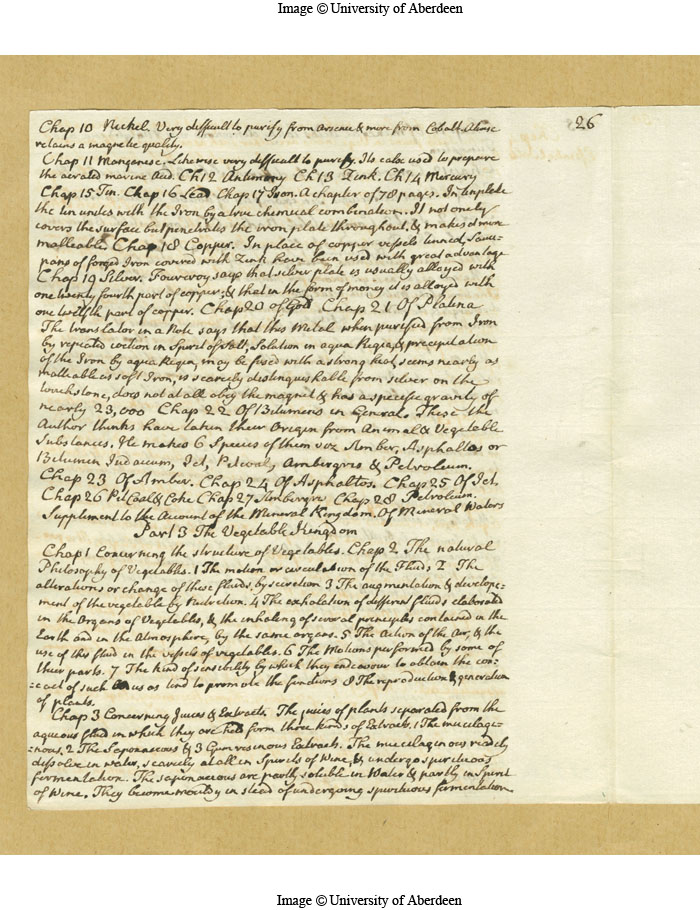 Image © University of Aberdeen
26
Chap 10 Nickel. Very difficult to purify from Arsenic & more from Cobalt. Alone
retains a magnetic quality.
Chap 11 Manganese, likewise very difficult to purify. Its calx used to prepare
the aerated marine Acid. Ch 12 Antimony Ch 13 Zink. Ch 14 Mercury
Chap 15 Tin. Chap 16 Lead Chap 17 Iron. A chapter of 78 pages. In tin plate
the tin unites with the Iron by a true chemical combination. It not onely
covers the surface but penetrates the iron plate throughout. & makes it more
malleable. Chap 18 Copper. In place of copper vessels tinned, Sauce-
pans of forged Iron covered with Zink have been used with great advantage
Chap 19 Silver. Fourcroy says that silver plate is usually alloyed with
one twenty fourth part of copper; & that in the form of money it is alloyed with
one twelfth part of copper. Chap 20 of Gold Chap 21 Of Platina
The translator in a Note says that this Metal when purified from Iron
by repeated coction in Spirit of Salt, Solution in aqua Regia, & precipitation
of the Iron by aqua Regia, may be fused with a strong heat, seems nearly as
malleable as soft Iron, is scarcely distinguishable from silver on the
touchstone, does not at all obey the magnet & has a specific gravity of
nearly 23,000 Chap 22 Of Bitumens in General. These the
Author thinks have taken their Origin from Animal & Vegetable
Substances. He makes 6 Species of them viz Amber, Asphaltos or
Bitumen Judaicum, Jet, Pitcoal, Ambergris & Petroleum.
Chap 23 Of Amber. Chap 24 Of Asphaltos. Chap 25 Of Jet.
Chap 26 Pit Coal & Coke Chap 27 Ambergris Chap 28 Petroleum.
Supplement to the Account of the Mineral Kingdom. Of Mineral Waters
Part 3 The Vegetable Kingdom
Chap 1 Concerning the structure of Vegetables. Chap 2 The natural
Philosophy of Vegetables. 1 The motion or circulation of the Fluids 2 The
alterations or change of these fluids, by secretion 3 The augmentation & develope-
ment of the vegetable by Nutrition. 4 The exhalation of different fluids elaborated
in the Organs of Vegetables, & the inhaling of several principles contained in the
Earth and in the Atmosphere, by the same organs. 5 The Action of the Air, & the
use of this fluid in the vessels of vegetables. 6 The Motions performed by some of
their parts. 7 The kind of sensibility by which they endeavour to obtain the con-
=tact of such as tend to promote the functions 8 The reproduction & generation
of plants.
Chap 3 Concerning Juices & Extracts. The juices of plants separated from the
aqueous fluid in which they are held form three kinds of Extracts, 1 The mucilagi-
=nous, 2 The Saponaceous & 3 Gumresinous Extracts. The mucilaginous readily
dissolve in water, scarcely at all in Spirits of Wine, & undergo spirituous
fermentation. The saponaceous are partly soluble in Water & partly in Spirit
of Wine. They become mouldy in stead of undergoing spirituous fermentation
Image © University of Aberdeen